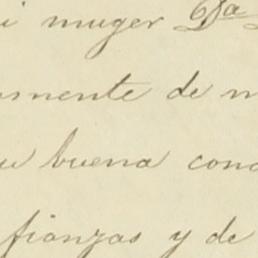 i muger Da
mente de m
u buena cond
fianzas y de